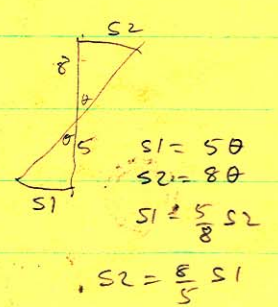 S2
8
θ
θ
5
S1
S1 = 5θ
S2 = 8θ
S1 = 5/8 S2
S2 = 8/5 S1